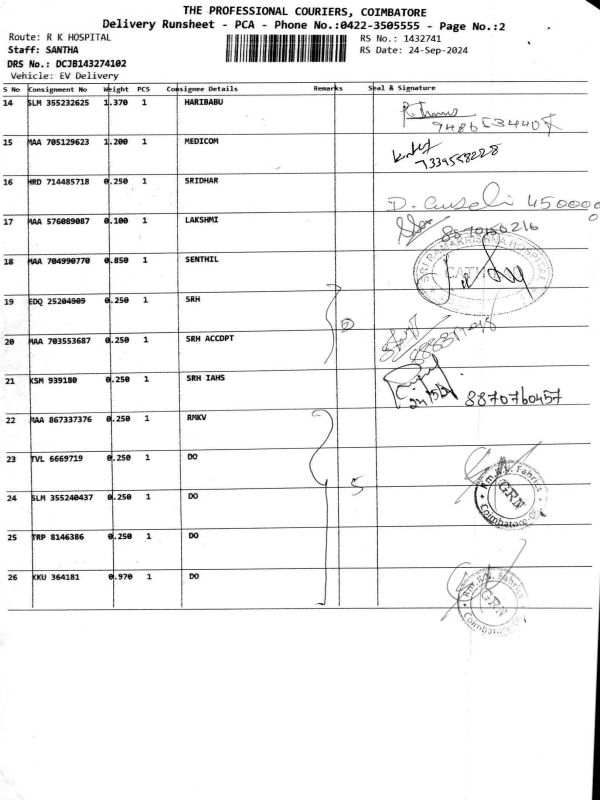 THE PROFESSIONAL COURIERS, COIMBATORE
Delivery Runsheet - PCA - Phone No.:0422-3505555 - Page No.:2
Route: R K HOSPITAL RS No.: 1432741
Staff: SANTHA RS Date: 24-Sep-2024
DRS No.: DCJB143274102
Vehicle: EV Delivery
S No Consignment No Weight PCS Consignee Details Remarks Seal & Signature
14 SLM 355232625 1.370 1 HARIBABU
15 MAA 705129623 1.200 1 MEDICOM
7339558228
16 HRD 714485718 0.250 1 SRIDHAR
17 MAA 576089087 0.100 1 LAKSHMI
18 MAA 704990770 0.850 1 SENTHIL
SRI RAMAKRISHNA HOSPITAL
19 EDQ 25204909 0.250 1 SRH
20 MAA 703553687 0.250 1 SRH ACCDPT
21 KSM 939180 0.250 1 SRH IAHS
8870760457
22 MAA 867337376 0.250 1 RMKV
23 TVL 6669719 0.250 1 DO
5
Rm.K.V. Fabrics
GRN
Coimbatore
24 SLM 355240437 0.250 1 DO
25 TRP 8146386 0.250 1 DO
26 KKU 364181 0.970 1 DO
Rm.K.V. Fabrics
GRN
Coimbatore